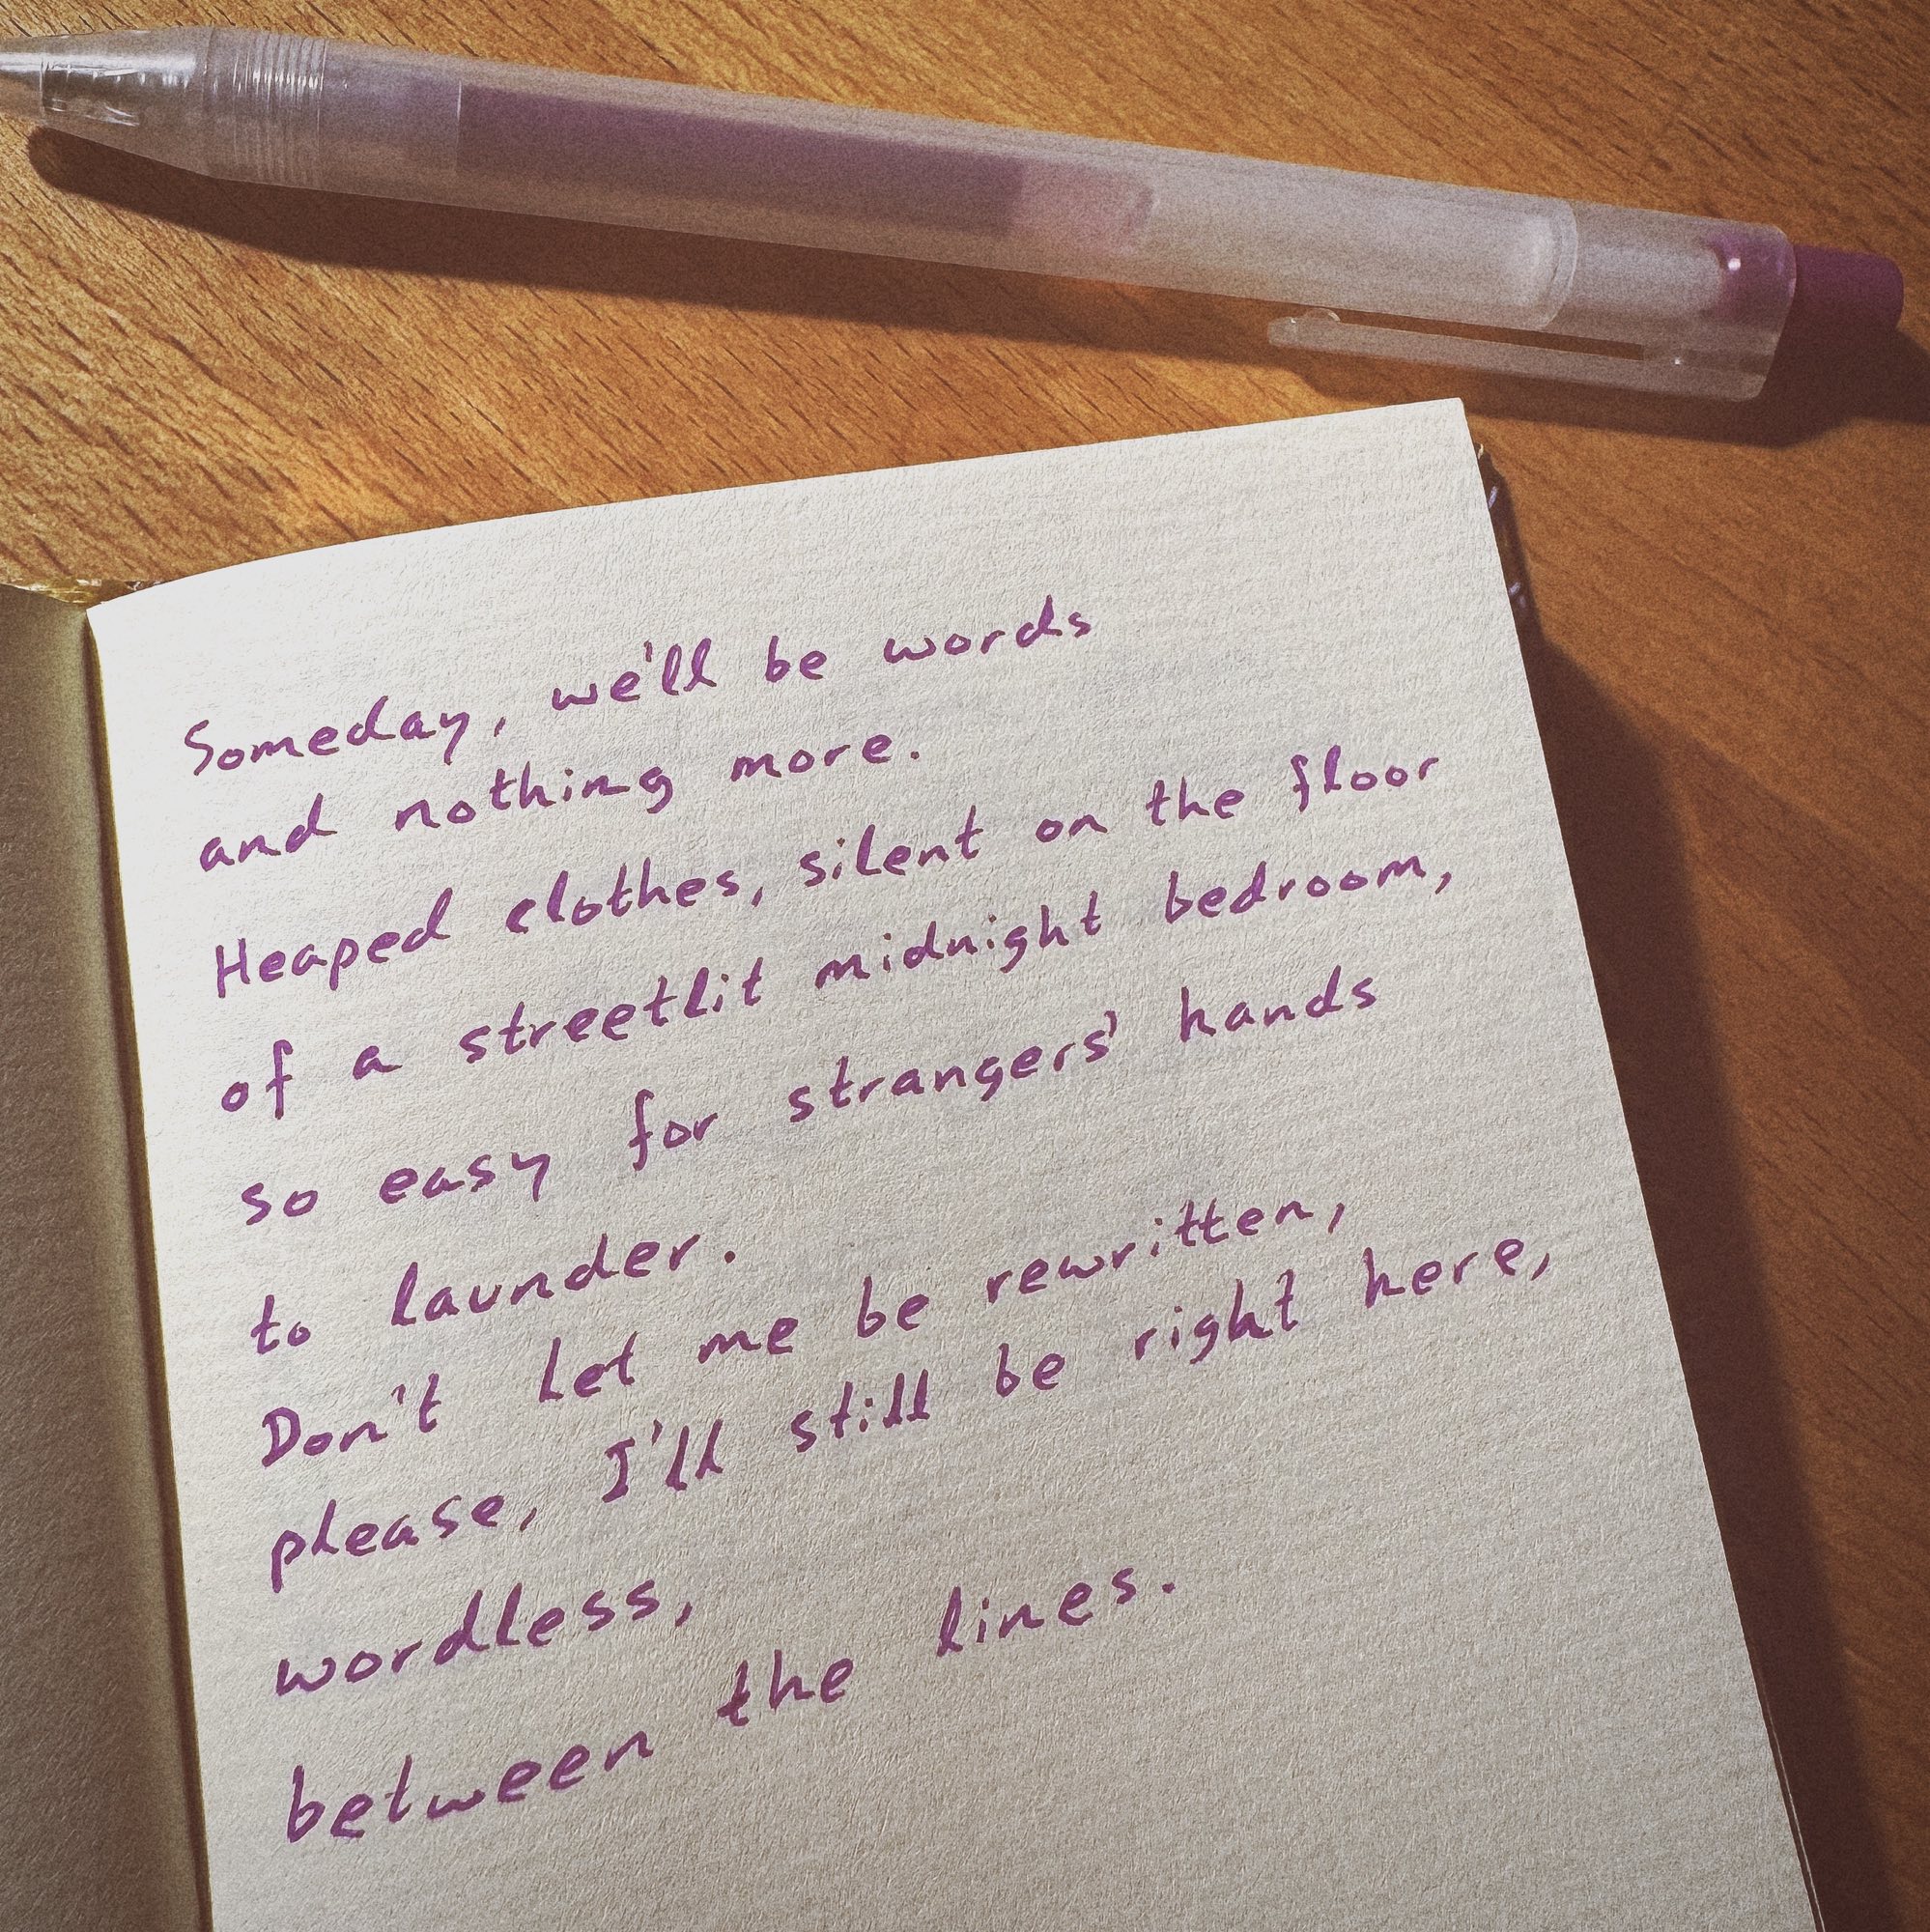 Someday, we'll be words
and nothing more.
Heaped clothes, silent on the floor
of a streetlit midnight bedroom,
so easy for strangers' hands
to launder.
Don't let me be rewritten,
please, I'll still be right here,
wordless,
between the lines.